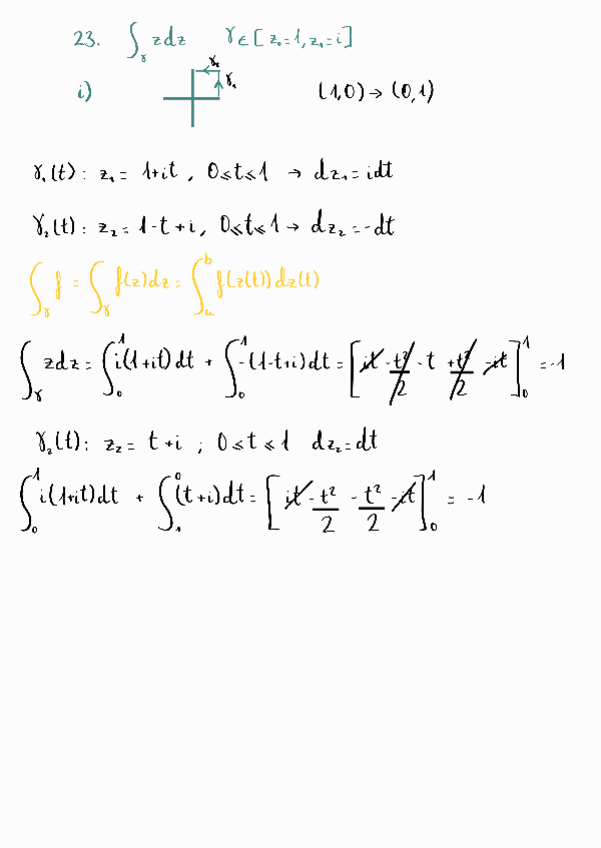 23. ∫_γ zdz γ∈[z₀=1, z₁=i]
γ₂
γ₁
i) (1,0)→(0,1)
γ₁(t): z₁= 1+it, 0≤t≤1 → dz₁=idt
γ₂(t): z₂= 1-t+i, 0≤t≤1 → dz₂=-dt
∫_γ f = ∫_γ f(z)dz = ∫_a^b f(z(t))dz(t)
∫_γ zdz = ∫_0^1 i(1+it)dt + ∫_0^1 -(1-t+i)dt = [it - t²/2 - t + t²/2 - it]_0^1 = -1
γ₂(t): z₂= t+i ; 0≤t≤1 dz₂=dt
∫_0^1 i(1+it)dt + ∫_1^0 (t+i)dt = [it - t²/2 - t²/2 - it]_0^1 = -1